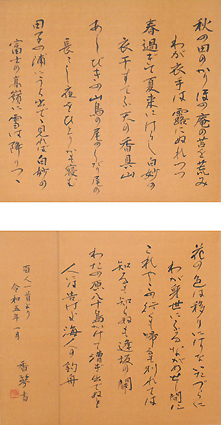 秋の田のかりほの庵の苫を荒み
わが衣手は露にぬれつつ
春過ぎて夏来にけらし白妙の
衣干すてふ天の香具山
あしびきの山鳥の尾のしだり尾の
長々し夜をひとりかも寝む
田子の浦にうち出でて見れば白妙の
富士の高嶺に雪は降りつつ
花の色は移りにけりないたづらに
わが身世にふるながめせし間に
これやこの行くも帰るも別れては
知るも知らぬも逢坂の関
わたの原八十島かけて漕ぎ出でぬと
人には告げよ海人の釣舟
百人一首より
令和五年一月